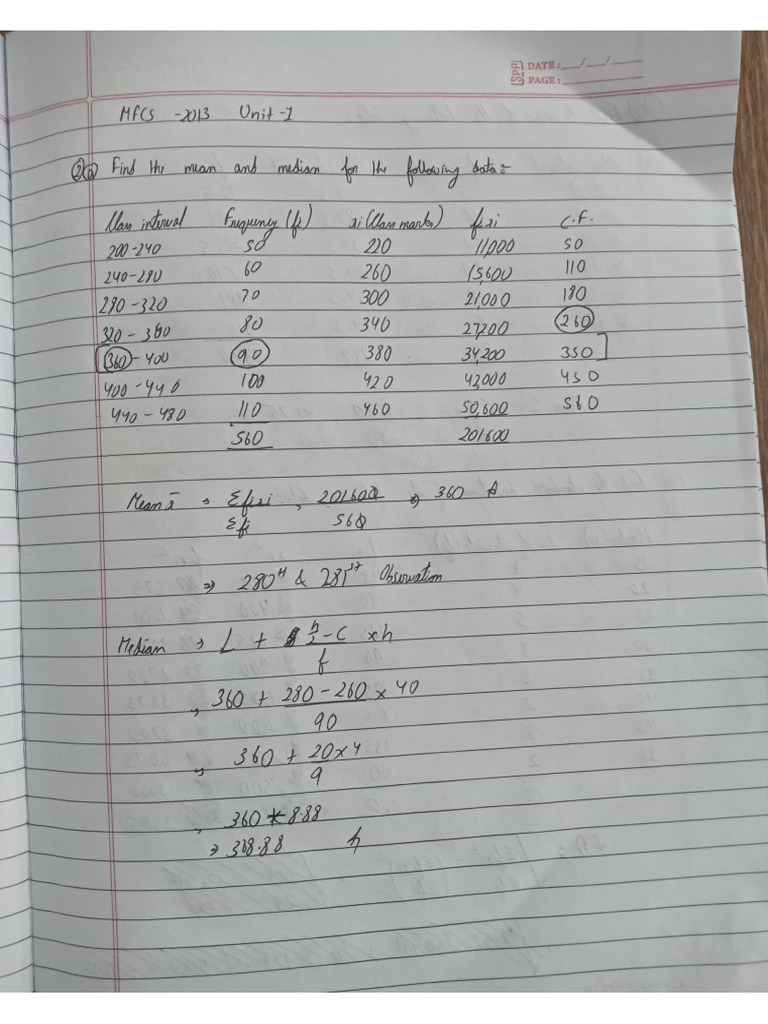 SPP DATE: __/__/____
PAGE: ________
MFCS - 2013 Unit - 1
②ⓐ Find the mean and median for the following data:-
Class interval Frequency (fi) xi (Class marks) fixi C.F.
200-240 50 220 11,000 50
240-280 60 260 15,600 110
280-320 70 300 21,000 180
320-360 80 340 27200 260
360-400 90 380 34,200 350
400-440 100 420 42,000 450
440-480 110 460 50,600 560
560 201600
Mean x̄ ⇒ Σfixi / Σfi , 201600 / 560 ⇒ 360 A
⇒ 280th & 281st Observation
Median ⇒ L + n/2 - C / f × h
⇒ 360 + 280 - 260 / 90 × 40
⇒ 360 + 20×4 / 9
⇒ 360 + 8.88
⇒ 368.88